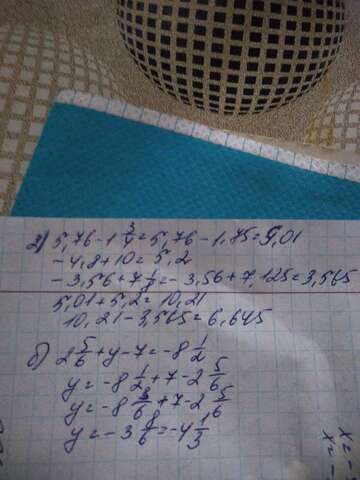 а) 5,76-1 3/4=5,76-1,75=5,01
-4,8+10=5,2
-3,56+7 1/8=-3,56+7,125=3,565
5,01+5,2=10,21
10,21-3,565=6,645
б) 2 5/6+y-7=-8 1/2
y=-8 1/2+7-2 5/6
y=-8 3/6+7-2 5/6
y=-3 8/6=-4 1/3
x=
x=-